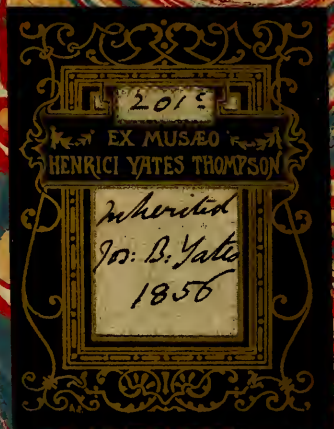 201ᶜ
EX MUSÆO
HENRICI YATES THOMPSON
Inherited
Jos: B: Yates
1856